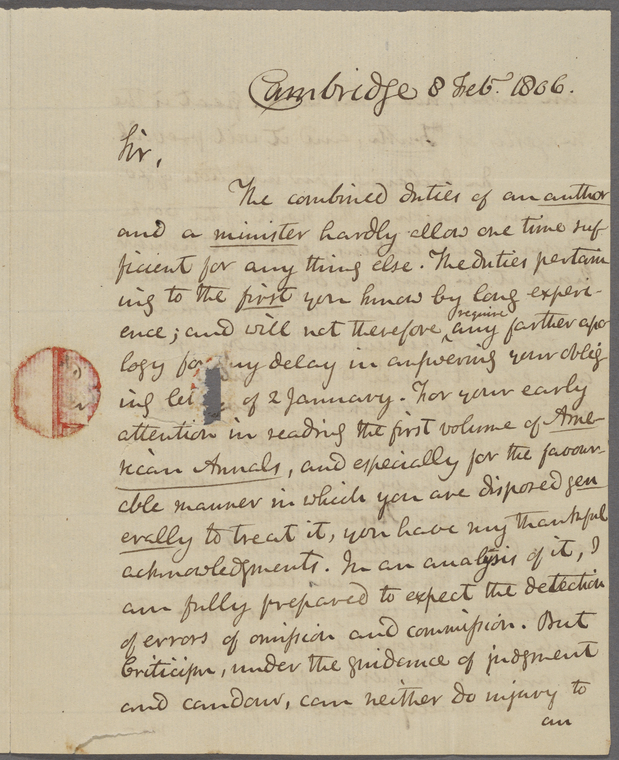 Cambridge 8 Feb.y 1806.
Sir,
The combined duties of an author
and a minister hardly allow one time suf-
ficient for any thing else. The duties pertain-
ing to the first you know by long experi-
ence; and will not therefore require any farther apo-
logy for my delay in answering your oblig-
ing let of 2 January. For your early
attention in reading the first volume of Ame-
rican Annals, and especially for the favour-
able manner in which you are disposed gen-
erally to treat it, you have my thankful
acknowledgments. In an analysis of it, I
am fully prepared to expect the detection
of errors of omission and commission. But
Criticism, under the guidance of judgment
and candour, can neither do injury to
an